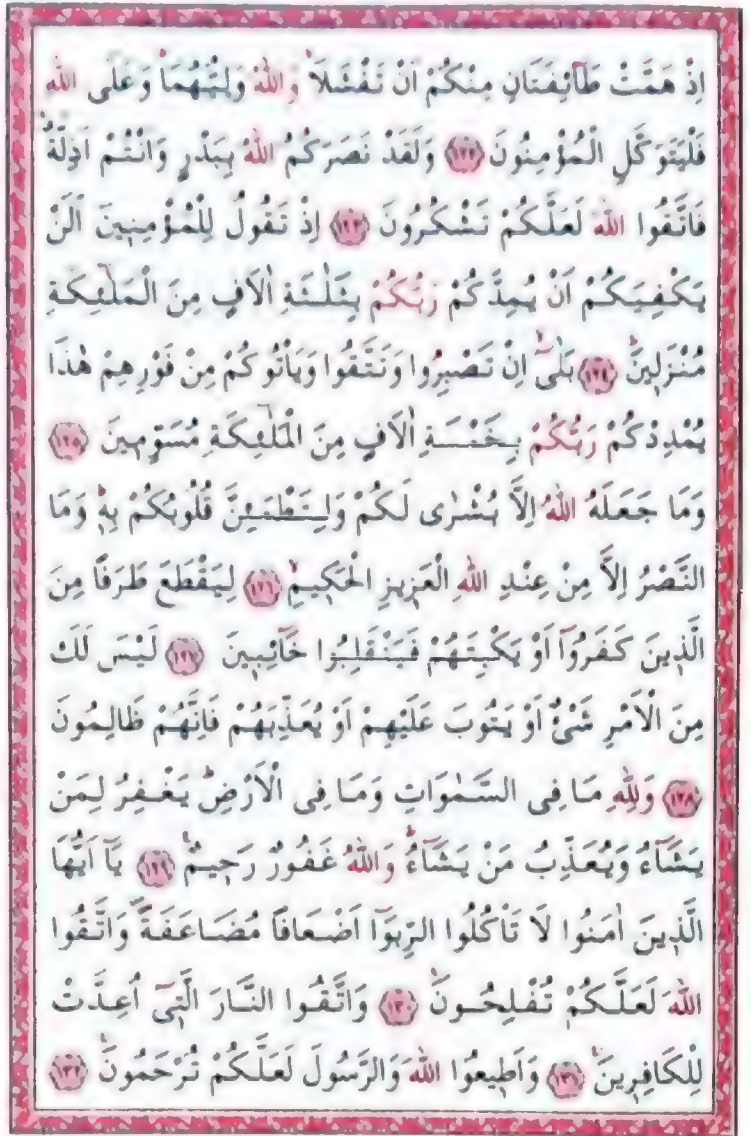 اِذْ هَمَّتْ طَٓائِفَتَانِ مِنْكُمْ اَنْ تَفْشَلَاۙ وَاللّٰهُ وَلِيُّهُمَاۜ وَعَلَى اللّٰهِ
فَلْيَتَوَكَّلِ الْمُؤْمِنُونَ ﴿١٢٢﴾ وَلَقَدْ نَصَرَكُمُ اللّٰهُ بِبَدْرٍ وَاَنْتُمْ اَذِلَّةٌۚ
فَاتَّقُوا اللّٰهَ لَعَلَّكُمْ تَشْكُرُونَ ﴿١٢٣﴾ اِذْ تَقُولُ لِلْمُؤْمِنِينَ اَلَنْ
يَكْفِيَكُمْ اَنْ يُمِدَّكُمْ رَبُّكُمْ بِثَلٰثَةِ اٰلَافٍ مِنَ الْمَلٰٓئِكَةِ
مُنْزَلِينَۜ ﴿١٢٤﴾ بَلٰٓىۙ اِنْ تَصْبِرُوا وَتَتَّقُوا وَيَأْتُوكُمْ مِنْ فَوْرِهِمْ هٰذَا
يُمْدِدْكُمْ رَبُّكُمْ بِخَمْسَةِ اٰلَافٍ مِنَ الْمَلٰٓئِكَةِ مُسَوِّمِينَ ﴿١٢٥﴾
وَمَا جَعَلَهُ اللّٰهُ اِلَّا بُشْرٰى لَكُمْ وَلِتَطْمَئِنَّ قُلُوبُكُمْ بِهٖۜ وَمَا
النَّصْرُ اِلَّا مِنْ عِنْدِ اللّٰهِ الْعَزِيزِ الْحَكِيمِۙ ﴿١٢٦﴾ لِيَقْطَعَ طَرَفًا مِنَ
الَّذِينَ كَفَرُٓوا اَوْ يَكْبِتَهُمْ فَيَنْقَلِبُوا خَٓائِبِينَ ﴿١٢٧﴾ لَيْسَ لَكَ
مِنَ الْاَمْرِ شَيْءٌ اَوْ يَتُوبَ عَلَيْهِمْ اَوْ يُعَذِّبَهُمْ فَاِنَّهُمْ ظَالِمُونَ
﴿١٢٨﴾ وَلِلّٰهِ مَا فِى السَّمٰوَاتِ وَمَا فِى الْاَرْضِۜ يَغْفِرُ لِمَنْ
يَشَٓاءُ وَيُعَذِّبُ مَنْ يَشَٓاءُۜ وَاللّٰهُ غَفُورٌ رَحِيمٌ۟ ﴿١٢٩﴾ يَٓا اَيُّهَا
الَّذِينَ اٰمَنُوا لَا تَأْكُلُوا الرِّبٰٓوا اَضْعَافًا مُضَاعَفَةًۖ وَاتَّقُوا
اللّٰهَ لَعَلَّكُمْ تُفْلِحُونَۚ ﴿١٣٠﴾ وَاتَّقُوا النَّارَ الَّتِٓى اُعِدَّتْ
لِلْكَافِرِينَۚ ﴿١٣١﴾ وَاَطِيعُوا اللّٰهَ وَالرَّسُولَ لَعَلَّكُمْ تُرْحَمُونَۚ ﴿١٣٢﴾